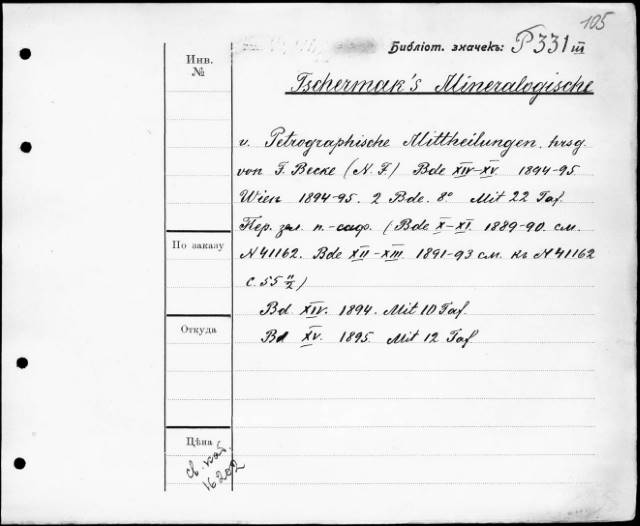 105
Библiот. значекъ: P 331 III
Инв.
№
Tschermak's Mineralogische
u. Petrographische Mittheilungen. hrsg.
von F. Becke (N. F.) Bde XIV–XV. 1894–95.
Wien 1894–95. 2 Bde. 8° Mit 22 Taf.
Пер. (Bde X–XI. 1889–90. см.
N 41162. Bde XII–XIII. 1891–93 см. къ N 41162
По заказу
с. 55)
Bd. XIV. 1894. Mit 10 Taf.
Откуда
Bd XV. 1895. Mit 12 Taf.
Цѣна
св. кат.
16202